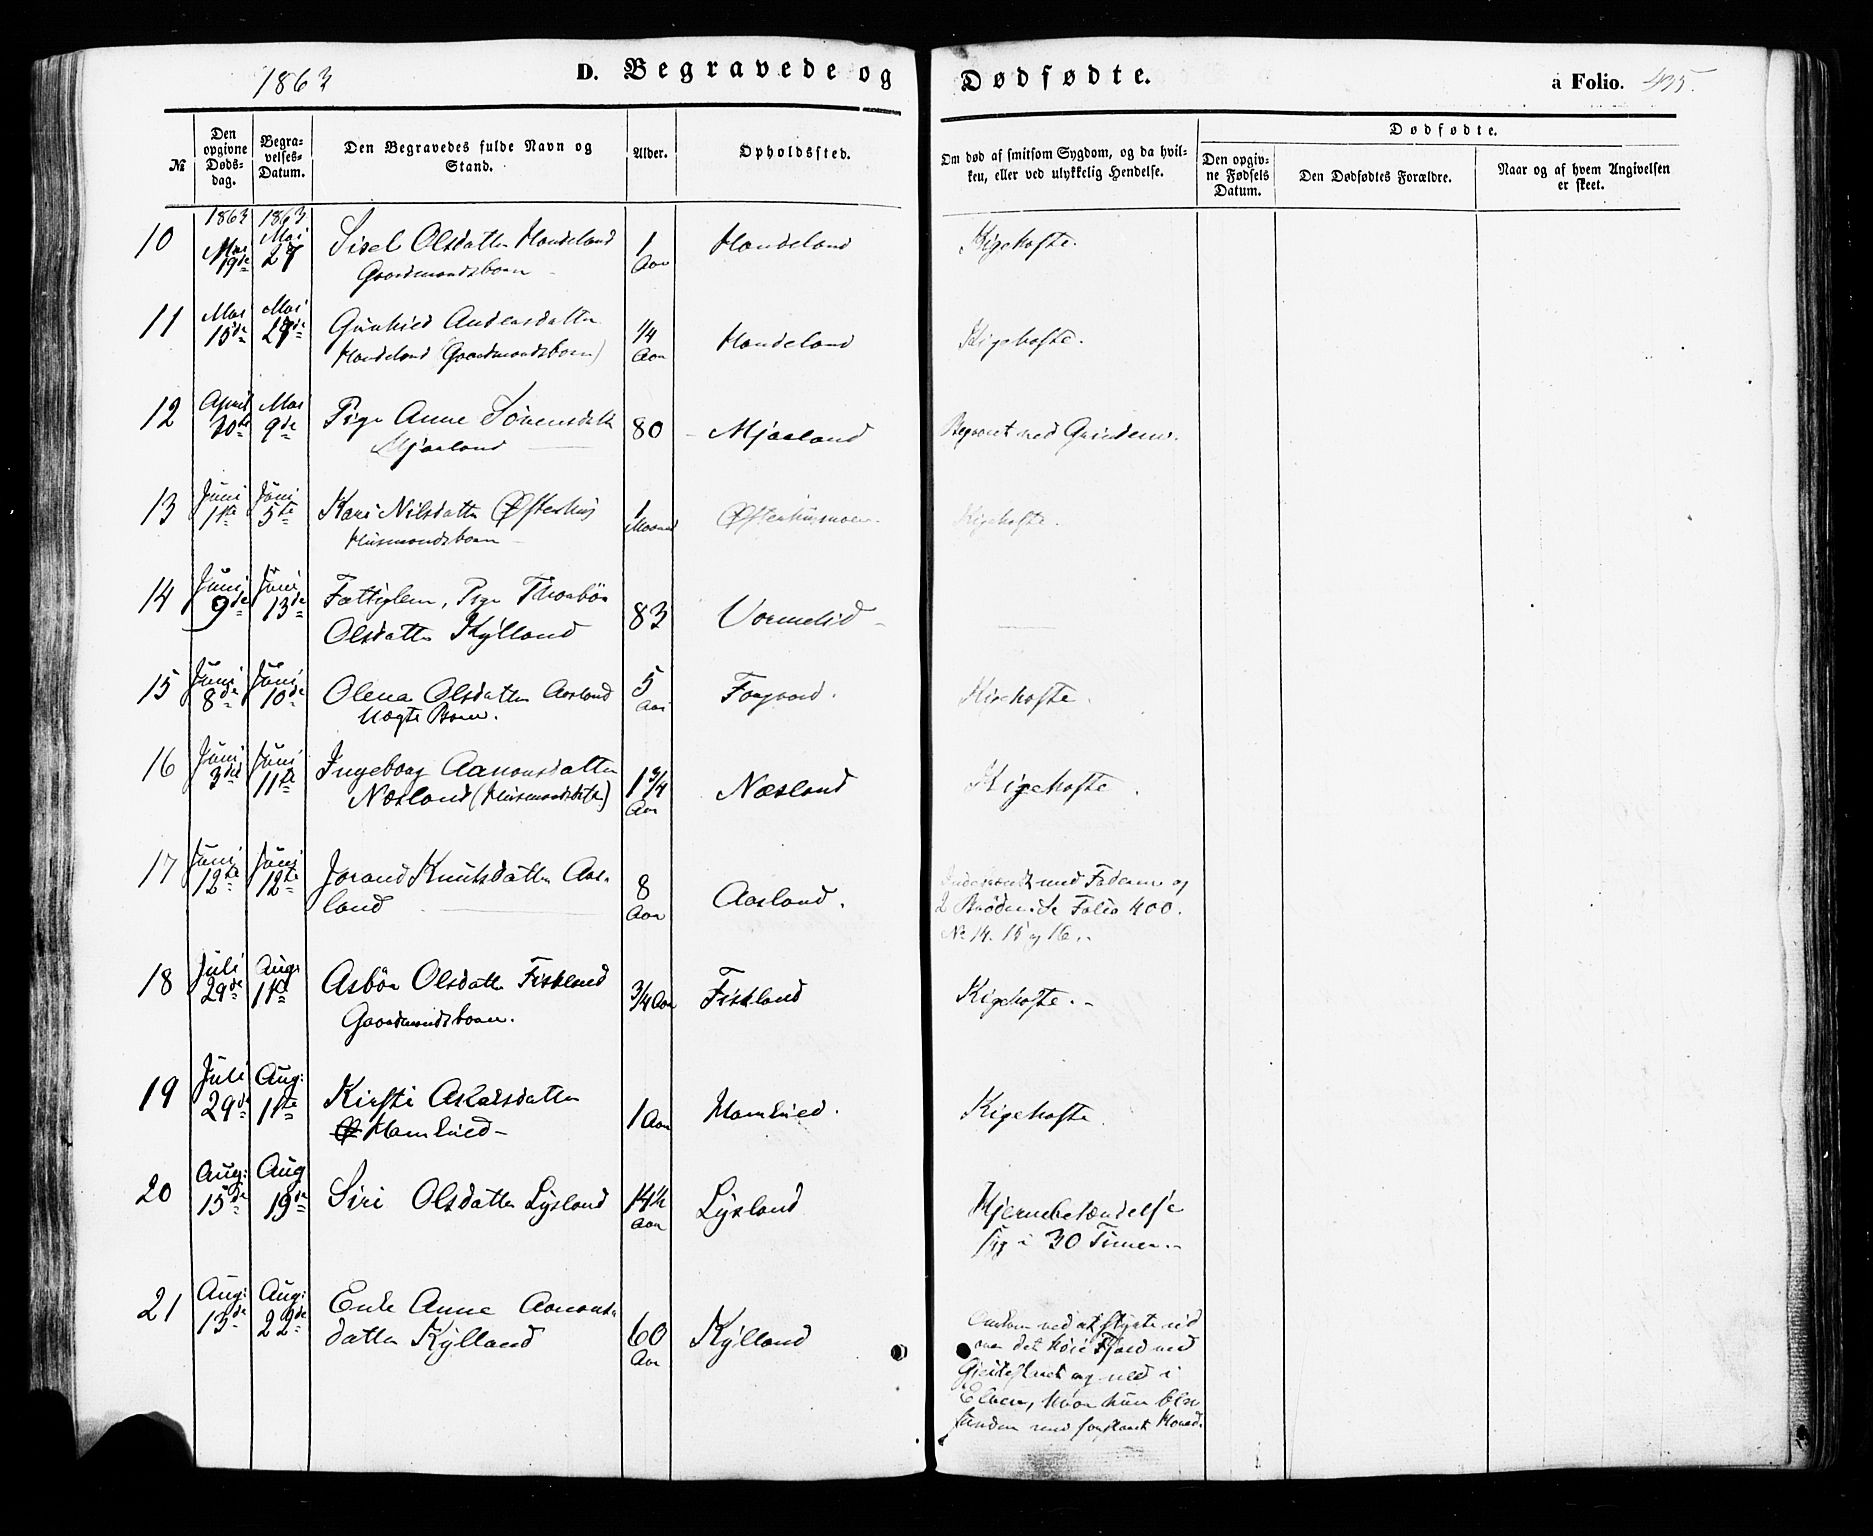 1863
D. Begravede og Dødfødte.
a Folio. 435.
№
Den opgivne Døds-dag.
Begra-velses-Datum.
Den Begravedes fulde Navn og Stand.
Alder.
Opholdssted.
Om død af smitsom Sygdom, og da hvil-
ken, eller ved ulykkelig Hendelse.
Dødfødte.
Den opgiv-ne Fødsels Datum.
Den Dødfødtes Forældre.
Naar og af hvem Angivelsen er skeet.
1863 1863
10 Mai 19de Mai 27 Sisel Olsdatter Haadeland 1 Aar Haadeland Kigehoste.
Gaardmandsbarn
11 Mai 15de Mai 27de Gunhild Andersdatter 1/4 Aar Haadeland Kigehoste.
Haadeland (Gaardmandsbarn)
12 April 30te Mai 9de Pige Anne Sørensdatt 80 Mjaaland
Mjaaland
13 Juni 1ste Juni 5te Kari Nilsdatter Øfterhus 1 Maaned Øfterhusmoen. Kigehoste.
Husmandsbarn
14 Juni 9de Juni 13de Fattiglem, Pige Thorbør 83 Vormelid
Olsdatter Kylland
15 Juni 8de Juni 10de Olena Olsdatter Aasland 5 Aar Kigehoste.
Uægte Barn.
16 Juni 3die Juni 11te Ingeborg Aanonsdatter 1 3/4 Aar Næsland Kigehoste.
Næsland
17 Juni 12te Juni 12te Jorand Knutsdatter Aas- 8 Aar Aasland. med Faderen og
land 2 Brødre Folio 400.
No 14. 15 og 16.
18 Juli 29de Aug: 1ste Asbør Olsdatter Fiskland 3/4 Aar Fiskland Kigehoste.
Gaardmandsbarn.
19 Juli 29de Aug: 1ste Kirsti Aslaksdatter 1 Aar Kigehoste
20 Aug: 15de Aug 19de Siri Olsdatter Lysland 14½ Aar Lysland Hjernebetændelse
syg i 30 Timer.
21 Aug: 13de Aug: 22de Enke Anne Aanons- 60 Aar Kylland Omkom ved at styrte ud
datter Kylland over det høie Fjeld ved
og ned i
Elven, hvor hun blev
funden med knust Hoved.